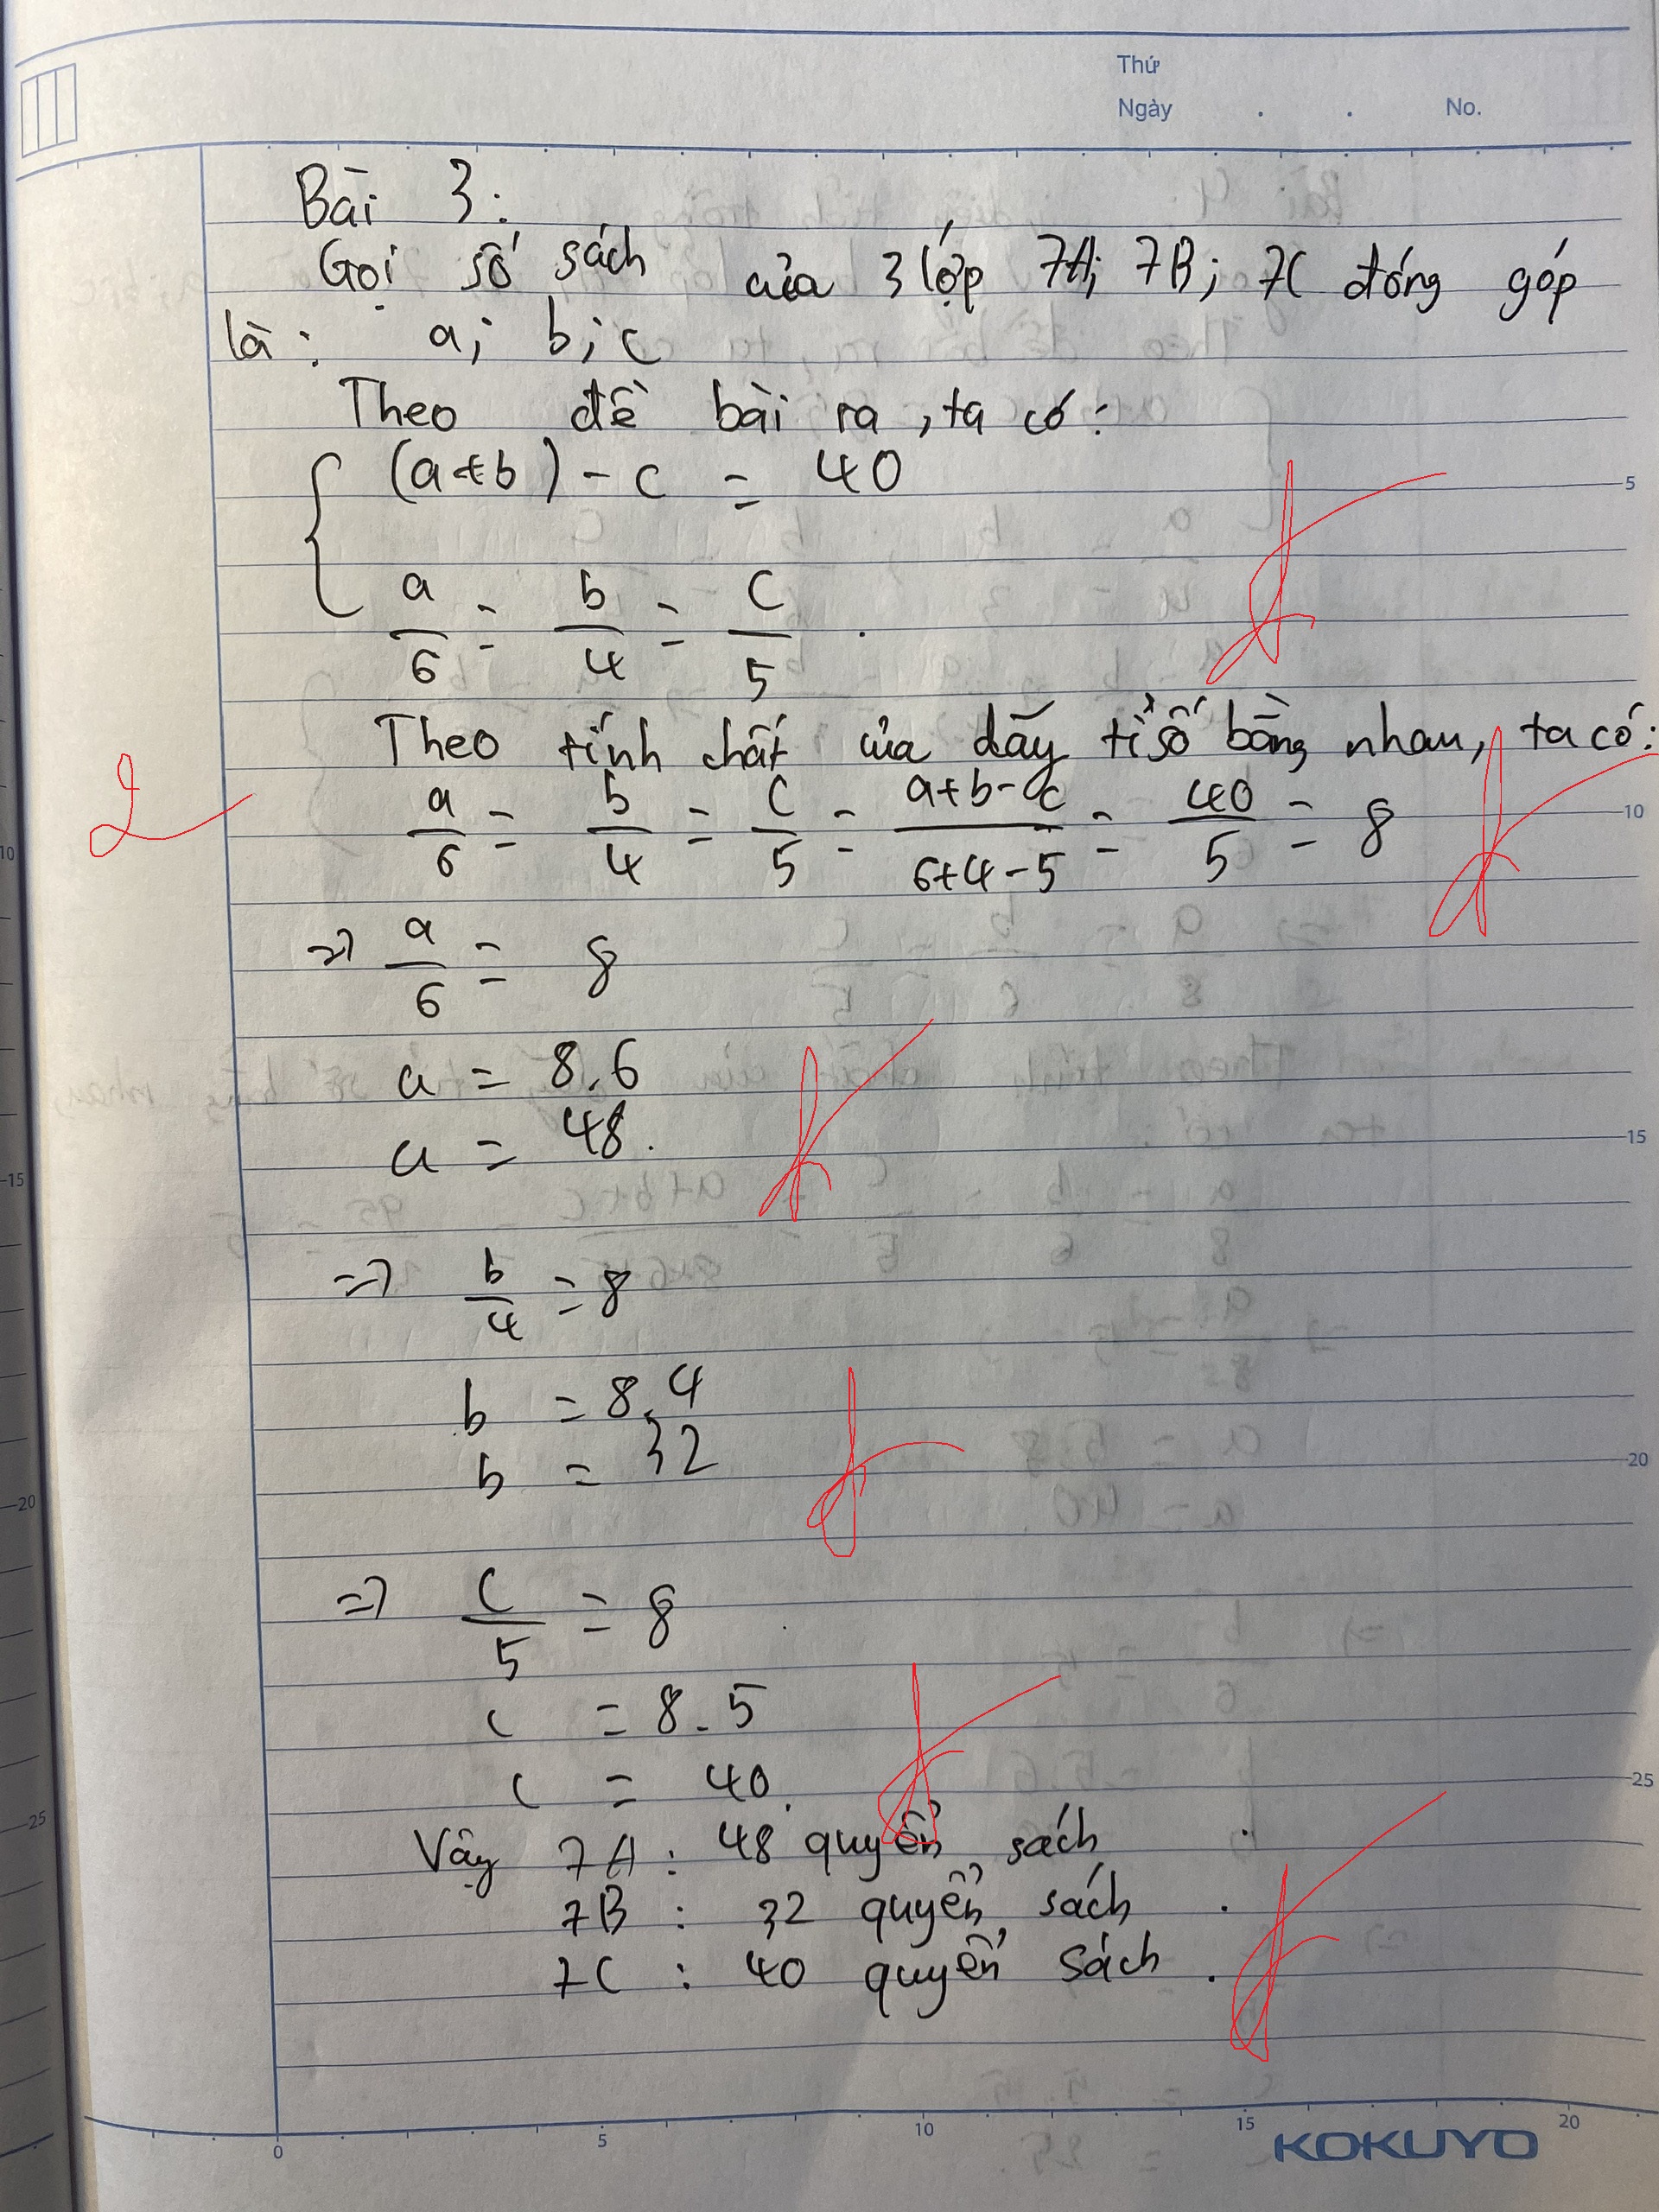 Thứ
Ngày . . No.
Bài 3:
Gọi số sách của 3 lớp 7A; 7B; 7C đóng góp
là: a; b; c
Theo đề bài ra, ta có:
(a+b) - c = 40
a/6 = b/4 = c/5 .
Theo tính chất của dãy tỉ số bằng nhau, ta có:
2
a/6 = b/4 = c/5 = a+b-c/6+4-5 = 40/5 = 8
=> a/6 = 8
a = 8.6
a = 48.
=> b/4 = 8
b = 8.4
b = 32
=> c/5 = 8
c = 8.5
c = 40.
Vậy 7A: 48 quyển sách .
7B : 32 quyển sách .
7C : 40 quyển sách .
5
10
15
20
25
0 5 10 15 20
KOKUYO